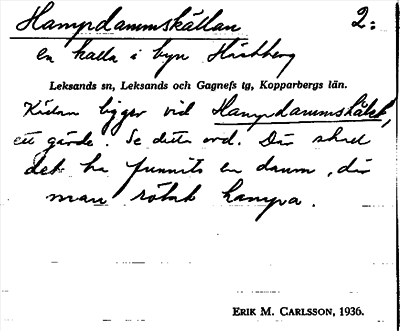 Hampdammskällan 2:
en källa i byn Hästberg
Leksands sn, Leksands och Gagnefs tg, Kopparbergs län.
Källan ligger vid Hampdammshålet,
ett gärde. Se detta ord. Där skall
det ha funnits en damm, där
man rötat hampa.
ERIK M. CARLSSON, 1936.